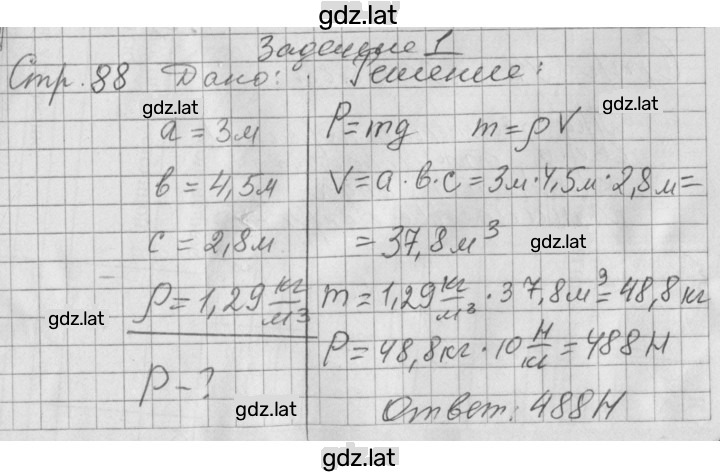 gdz.lat
Задание 1
Стр. 88 Дано: Решение:
gdz.lat
gdz.lat
a = 3м
P = mg m = ρV
в = 4,5м
V = a · в · c = 3м · 4,5м · 2,8м =
c = 2,8м
= 37,8м³
gdz.lat
ρ = 1,29 кг/м³
m = 1,29 кг/м³ · 37,8м³ = 48,8кг
gdz.lat
P = 48,8кг · 10 Н/кг = 488Н
P - ?
gdz.lat
Ответ: 488Н
gdz.lat